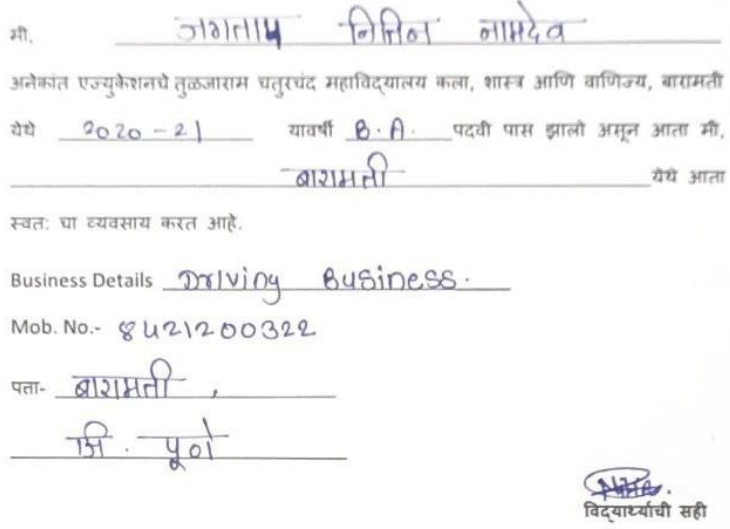 मी. जगताप नितिन नामदेव
अनेकांत एज्युकेशनचे तुळजाराम चतुरचंद महाविद्यालय कला, शास्त्र आणि वाणिज्य, बारामती
येथे 2020-21 यावर्षी B.A. पदवी पास झालो असून आता मी,
बारामती येथे आता
स्वतः चा व्यवसाय करत आहे.
Business Details Driving Business.
Mob. No.- 8421200322
पत्ता- बारामती,
जि. पूणे
विद्यार्थ्याची सही